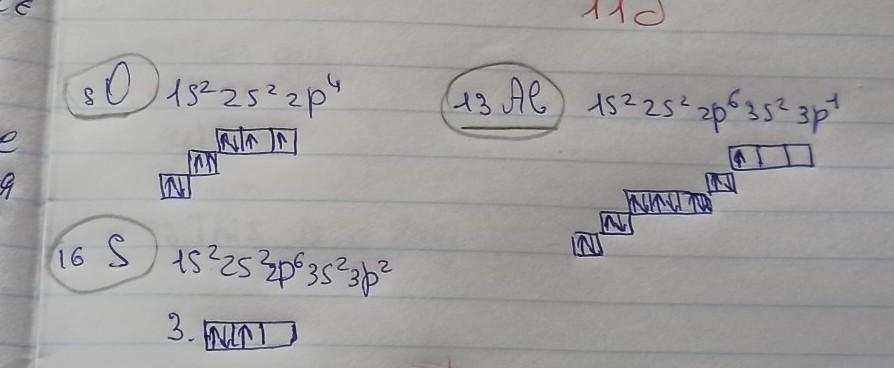 110
8 O 1s² 2s² 2p⁴
13 Al 1s² 2s² 2p⁶ 3s² 3p¹
↑↓ ↑ ↑
↑↑
↑↓
↑
↑↓
↑↓ ↑↓ ↑↓
↑↓
↑↓
16 S 1s² 2s² 2p⁶ 3s² 3p²
3. ↑↓ ↑